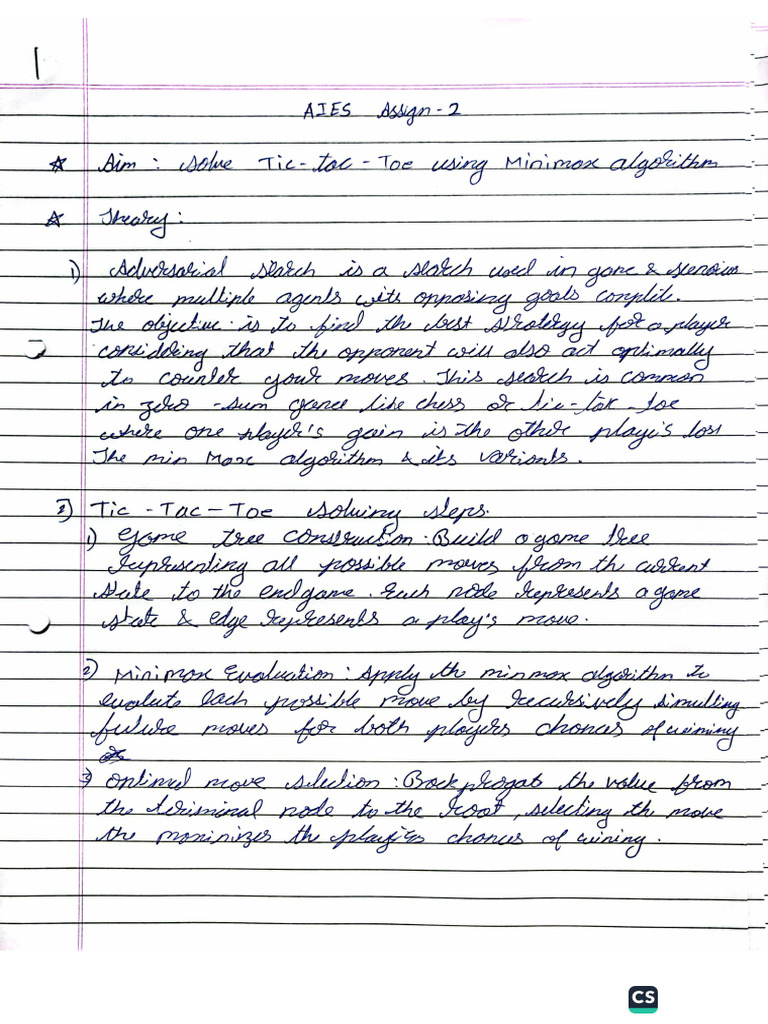 1
AIES Assign-2
☆ Aim : solve Tic-tac-Toe using Minimax algorithm
☆ Theory :
1) Adversarial search is a search used in game & scenarios
where multiple agents with opposing goals complit.
The objective is to find the best strategy for a player
considding that the opponent will also act optimally
to counter your moves. This search is common
in zero-sum games like chess or tic-tak-toe
where one player's gain is the other player's loss
The min Max algorithm & its variants.
2) Tic-Tac-Toe solving steps.
1) Game tree construction: Build a game tree
representing all possible moves from th current
state to the endgame. Each node represents a game
state & edge represents a play's move.
2) Minimax Evaluation : Apply th minmax algorithm to
evaluate each possible move by recursively simulting
future moves for both players chances of wining
3) Optimal move selection : Backprogat the value from
the terminal node to the root, selecting th move
the maximizes the players chances of wining.
CS